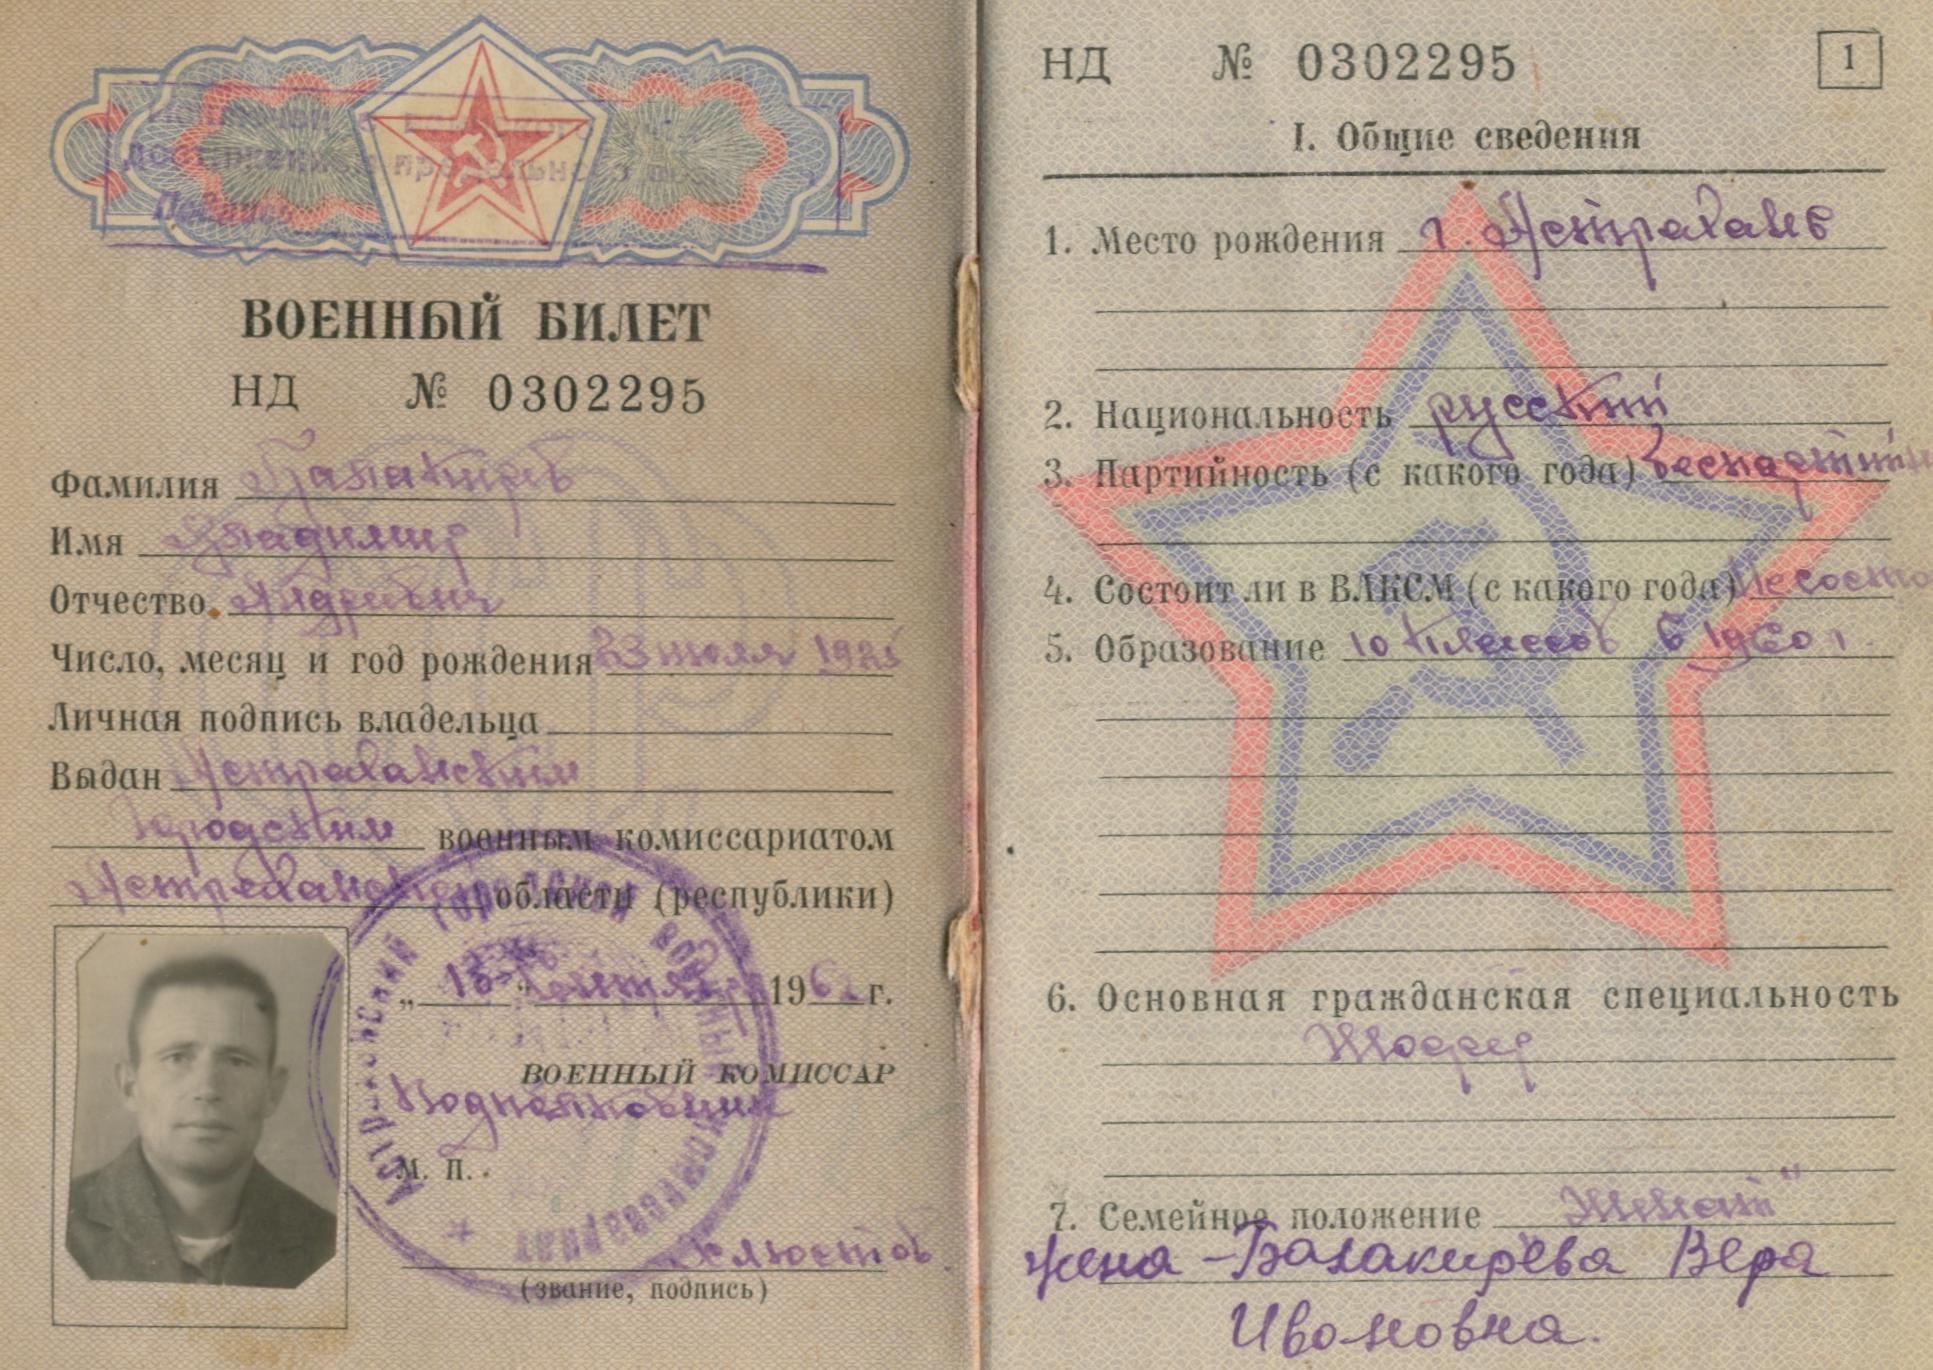 ВОЕННЫЙ БИЛЕТ
НД № 0302295
Фамилия Балакирев
Имя Владимир
Отчество Андреевич
Число, месяц и год рождения 23 июля 1925
Личная подпись владельца
Выдан Астраханским
Городским военным комиссариатом
Астраханской области (республики)
АСТРАХАНСКИЙ ГОРОДСКОЙ ВОЕННЫЙ КОМИССАРИАТ
„15“ сентября 1962 г.
ВОЕННЫЙ КОМИССАР
Подполковник
М. П.
Хлюстов
(звание, подпись)
НД № 0302295
1
I. Общие сведения
1. Место рождения г. Астрахань
2. Национальность русский
3. Партийность (с какого года) беспартийн
4. Состоит ли в ВЛКСМ (с какого года) Несосто
5. Образование 10 классов в 1960 г.
6. Основная гражданская специальность
Шофер
7. Семейное положение „Женат"
жена - Балакирева Вера
Ивановна.